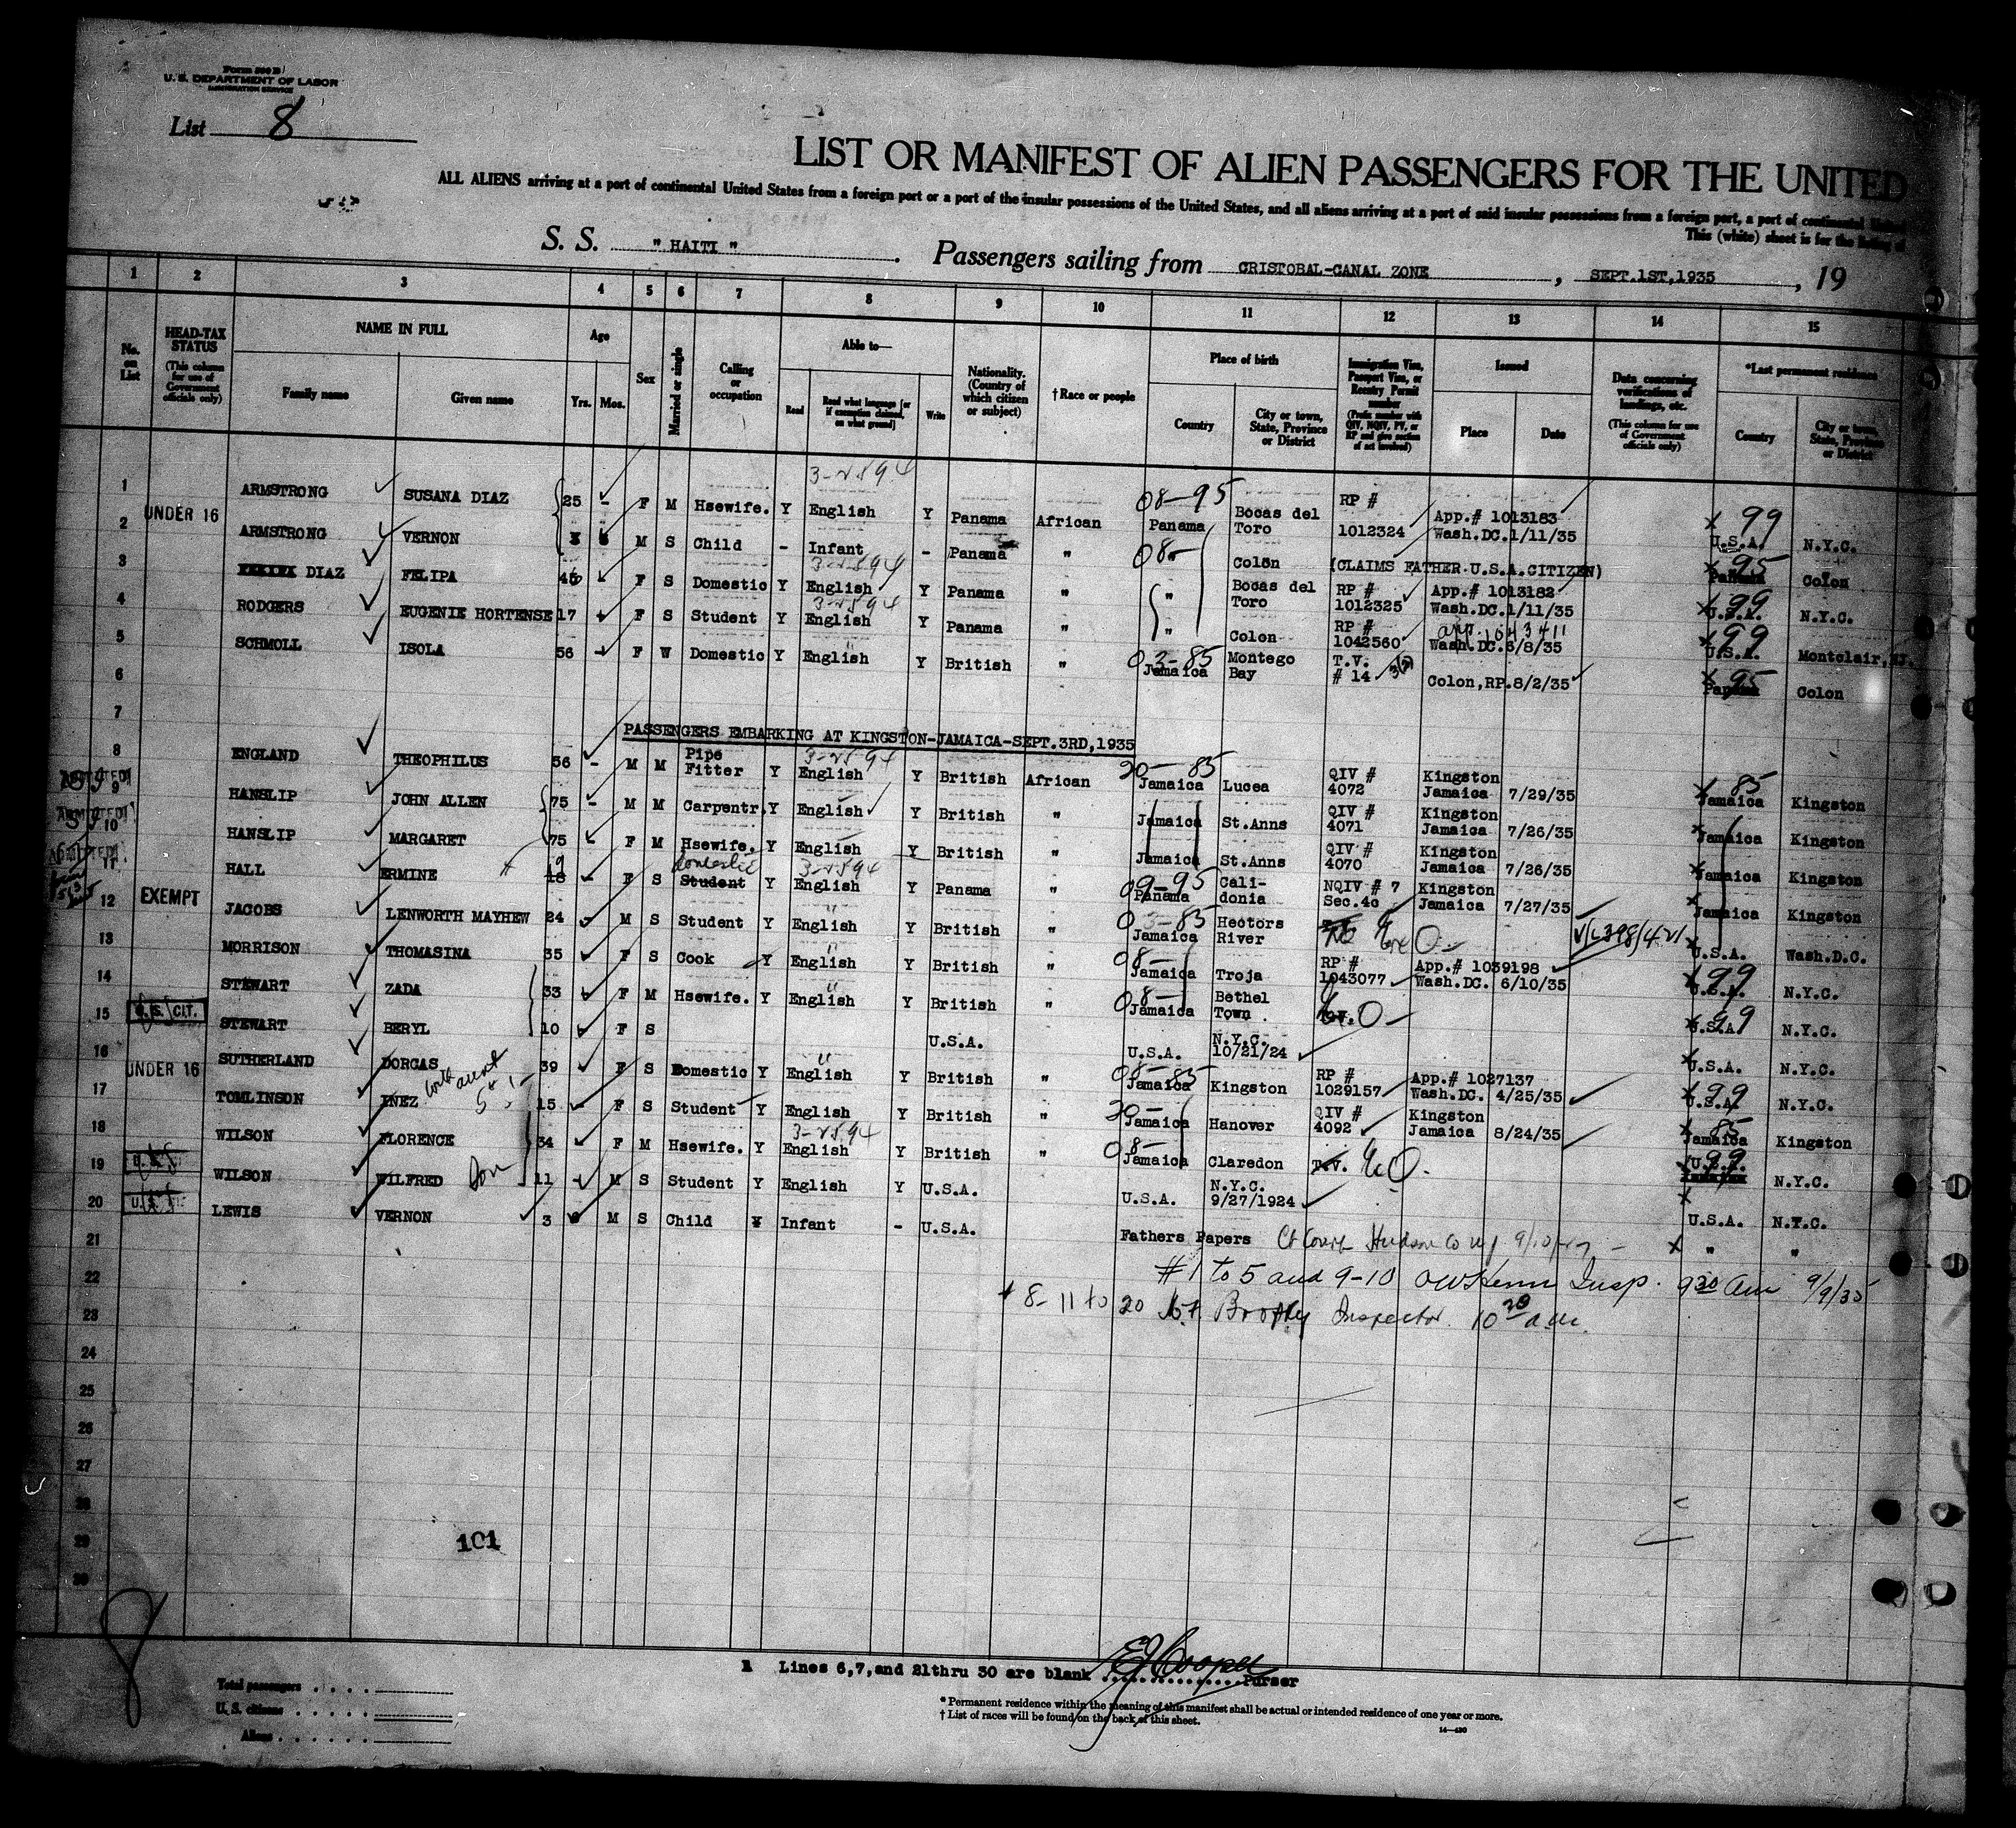 Form 500 B
U. S. DEPARTMENT OF LABOR
IMMIGRATION SERVICE
List 8
LIST OR MANIFEST OF ALIEN PASSENGERS FOR THE UNITED
ALL ALIENS arriving at a port of continental United States from a foreign port or a port of the insular possessions of the United States, and all aliens arriving at a port of said insular possessions from a foreign port, a port of continental
This (white) sheet is for the listing of
S. S. " HAITI " . Passengers sailing from CRISTOBAL-CANAL ZONE , SEPT.1ST,1935 , 19
1 2 3 4 5 6 7 8 9 10 11 12 13 14 15
No. on List
HEAD-TAX STATUS (This column for use of Government officials only)
NAME IN FULL
Family name Given name
Age Yrs. Mos.
Sex
Married or single
Calling or occupation
Able to— Read Read what language [or if exemption claimed, on what ground] Write
Nationality. (Country of which citizen or subject)
†Race or people
Place of birth Country City or town, State, Province or District
Immigration Visa, Passport Visa, or Reentry Permit number (Prefix number with QIV, NQIV, PV, or RP and give section of act involved)
Issued Place Date
Data concerning verifications of landings, etc. (This column for use of Government officials only)
*Last permanent residence Country City or town, State, Province or District
1 ARMSTRONG SUSANA DIAZ 25 - F M Hsewife. Y English Y Panama African 08-95 Panama Bocas del Toro RP # 1012324 App.# 1013183 Wash.DC.1/11/35 99 U.S.A. N.Y.C.
2 UNDER 16 ARMSTRONG VERNON M S Child - Infant - Panama " 08- Colon (CLAIMS FATHER U.S.A.CITIZEN) 95 Panama Colon
3 DIAZ FELIPA F S Domestic Y English Y Panama " " Bocas del Toro RP # 1012325 App.# 1013182 Wash.DC.1/11/35 99 U.S.A. N.Y.C.
4 RODGERS EUGENIE HORTENSE 17 F S Student Y English Y Panama " " Colon RP # 1042560 app. 1043411 Wash.DC.6/8/35 99 U.S.A. Montclair,NJ.
5 SCHMOLL ISOLA 56 - F W Domestic Y English Y British " 03-85 Jamaica Montego Bay T.V. # 14 Colon,RP.8/2/35 95 Panama Colon
6
7
PASSENGERS EMBARKING AT KINGSTON-JAMAICA-SEPT.3RD,1935
8 ENGLAND THEOPHILUS 56 - M M Pipe Fitter Y English Y British African 20-85 Jamaica Lucea QIV # 4072 Kingston Jamaica 7/29/35 85 Jamaica Kingston
9 HANSLIP JOHN ALLEN 75 - M M Carpentr. Y English Y British " Jamaica St.Anns QIV # 4071 Kingston Jamaica 7/26/35 Jamaica Kingston
10 HANSLIP MARGARET 75 F M Hsewife. Y English Y British " Jamaica St.Anns QIV # 4070 Kingston Jamaica 7/26/35 Jamaica Kingston
11 HALL ERMINE 18 - F S Student domestic Y English Y Panama " 09-95 Panama Cali- donia NQIV # 7 Sec.4c Kingston Jamaica 7/27/35 Jamaica Kingston
12 EXEMPT JACOBS LENWORTH MAYHEW 24 M S Student Y English Y British " 03-85 Jamaica Hectors River U.S.A. Wash.D.C.
13 MORRISON THOMASINA 35 F S Cook Y English Y British " 08- Jamaica Troja RP # 1043077 App.# 1039198 Wash.DC. 6/10/35 99 U.S.A. N.Y.C.
14 STEWART ZADA 33 F M Hsewife. Y English Y British " 08- Jamaica Bethel Town 99 U.S.A. N.Y.C.
15 U. S. CIT. STEWART BERYL 10 F S U.S.A. U.S.A. N.Y.C. 10/21/24 U.S.A. N.Y.C.
16 SUTHERLAND DORCAS 39 F S Domestic Y English Y British " 08-85 Jamaica Kingston RP # 1029157 App.# 1027137 Wash.DC. 4/25/35 99 U.S.A. N.Y.C.
17 UNDER 16 TOMLINSON INEZ with aunt 15 - F S Student Y English Y British " 20- Jamaica Hanover QIV # 4092 Kingston Jamaica 8/24/35 85 Jamaica Kingston
18 WILSON FLORENCE 34 F M Hsewife. Y English Y British " 08- Jamaica Claredon T.V. 99 U.S.A. N.Y.C.
19 WILSON WILFRED Son 11 M S Student Y English Y U.S.A. U.S.A. N.Y.C. 9/27/1924 U.S.A. N.Y.C.
20 LEWIS VERNON 3 M S Child Infant - U.S.A. Fathers Papers " "
21
22 #1 to 5 and 9-10 Insp. 9 30 am 9/9/35
23 8- 11 to 20 Brophy Inspector. 10 20 a.m.
24
25
26
27
28
29
30
101
8
1 Lines 6,7,and 21thru 30 are blank EJ Cooper Purser
Total passengers
U. S. citizens
Aliens
* Permanent residence within the meaning of this manifest shall be actual or intended residence of one year or more.
† List of races will be found on the back of this sheet.
14—430